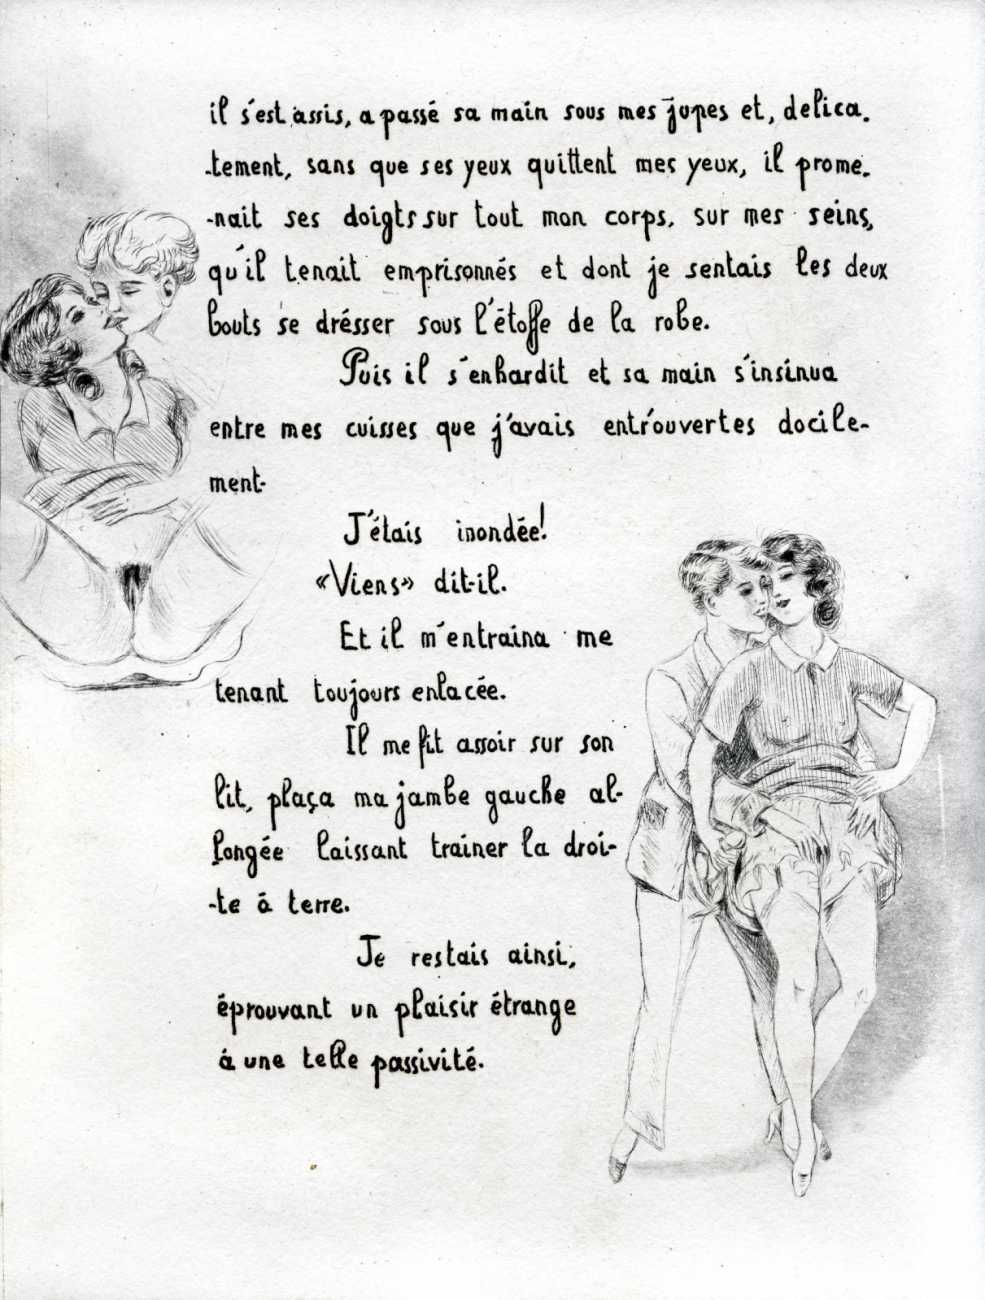 il s'est assis, a passé sa main sous mes jupes et, delica.
-tement, sans que ses yeux quittent mes yeux, il prome.
-nait ses doigts sur tout mon corps, sur mes seins,
qu'il tenait emprisonnés et dont je sentais les deux
bouts se drésser sous l'étoffe de la robe.
Puis il s'enhardit et sa main s'insinua
entre mes cuisses que j'avais entr'ouvertes docile-
ment.
J'étais inondée!
«Viens» dit-il.
Et il m'entraina me
tenant toujours enlacée.
Il me fit assoir sur son
lit, plaça ma jambe gauche al-
longée laissant trainer la droi-
-te à terre.
Je restais ainsi,
éprouvant un plaisir étrange
à une telle passivité.